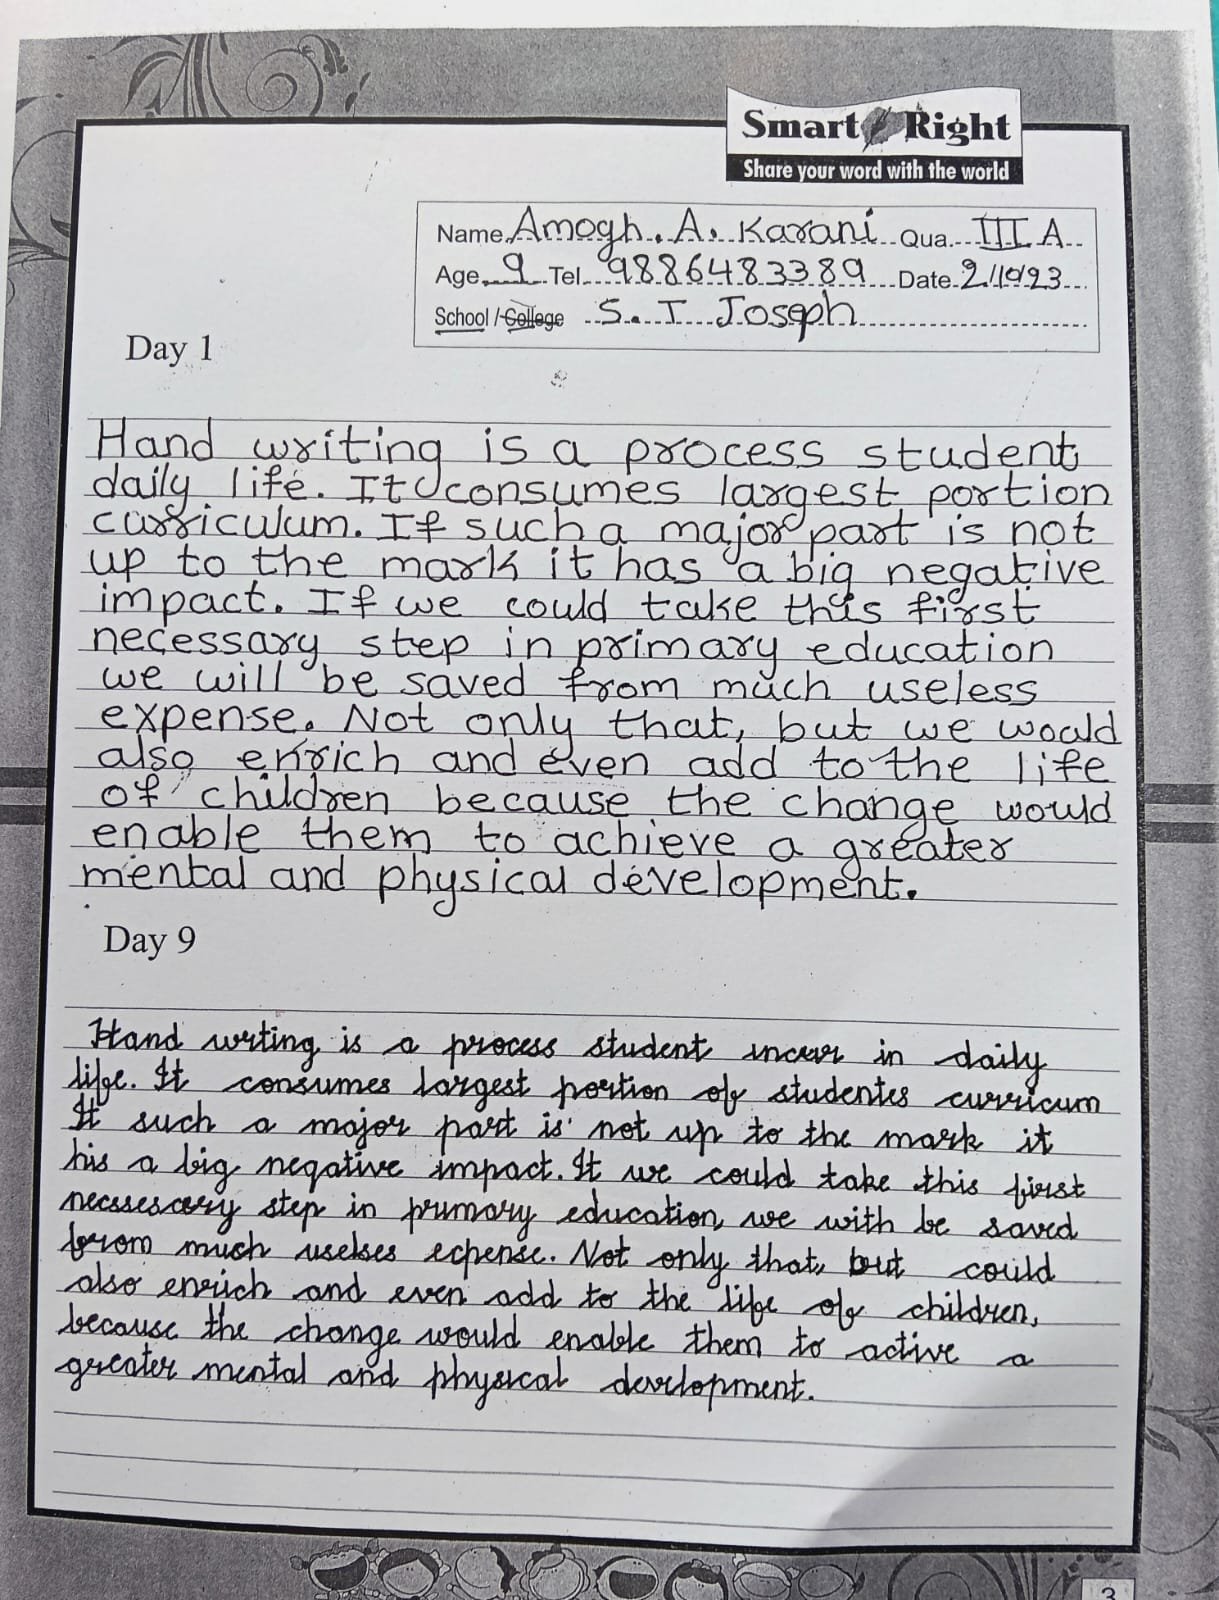 Smart Right
Share your word with the world
Name Amogh. A. Karani Qua. III A
Age 9 Tel. 9886483389 Date 2/10/23
School / College S. T Joseph
Day 1
Hand writing is a process student
daily life. It consumes largest portion
curriculum. If such a major part is not
up to the mark it has a big negative
impact. If we could take this first
necessary step in primary education
we will be saved from much useless
expense. Not only that, but we would
also enrich and even add to the life
of children because the change would
enable them to achieve a greater
mental and physical development.
Day 9
Hand wrting is a process student incur in daily
life. It consumes largest portion of studentes curricum
It such a major part is not up to the mark it
his a big negative impact. It we could take this first
necssescary step in prumary education, we with be saved
from much uselses echense. Not only that, but could
also enrich and even add to the life of children,
because the change would enable them to active a
greater mental and physical development.
3